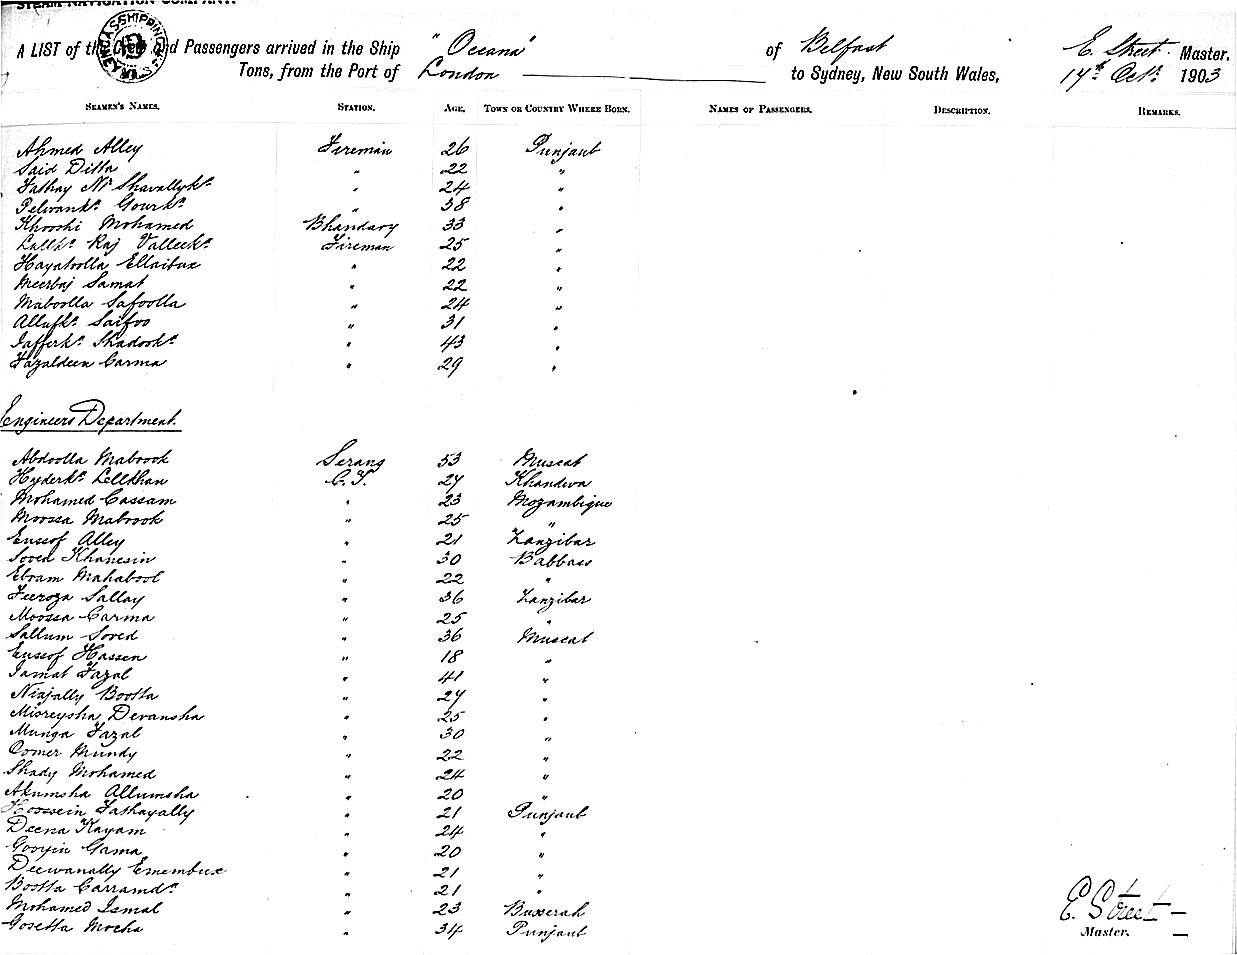 STEAM NAVIGATION COMPANY.
A LIST of the Crew and Passengers arrived in the Ship "Oceana" of Belfast E. Street Master,
Tons, from the Port of London to Sydney, New South Wales, 17th Octr. 1903
SEAMEN'S NAMES. STATION. AGE. TOWN OR COUNTRY WHERE BORN. NAMES OF PASSENGERS. DESCRIPTION. REMARKS.
Ahmed Alley Fireman 26 Punjaub
Said Ditta " 22 "
Fathay Shavallykn " 24 "
Pelwankn Gourkn " 38 "
Khooshi Mohamed Bhandary 33 "
Lallkn Raj Valleekn Fireman 25 "
Hayatoolla Ellaibux " 22 "
Meerbaj Samat " 22 "
Maboolla Safoolla " 24 "
Allufkn Saifoo " 31 "
Jafferkn Shadookn " 43 "
Fazaldeen Carma " 29 "
Engineers Department.
Abdoolla Mabrook Serang 53 Muscat
Hyderkn Lelldhan C.T. 27 Khandwa
Mohamed Cassam " 23 Mozambique
Moossa Mabrook " 25 "
Eussof Alley " 21 Zanzibar
Soved Khanesin " 30 Babbas
Ebram Mahabool " 22 "
Feeroza Sallay " 36 Zanzibar
Moossa Carma " 25 "
Sallum Soved " 36 Muscat
Eussof Hassen " 18 "
Jamat Fazal " 41 "
Niajally Bootta " 27 "
Mioreysha Devansha " 25 "
Munga Fazal " 30 "
Oomer Mundy " 22 "
Shady Mohamed " 24 "
Akumsha Allumsha " 20 "
Hoossein Fathayally " 21 Punjaub
Deena Kayam " 24 "
Gooyin Gama " 20 "
Deewanally Emembux " 21 "
Bootta Carramdn " 21 "
Mohamed Ismal " 23 Busserah
Gosetta Mocha " 34 Punjaub
E. Street
Master.